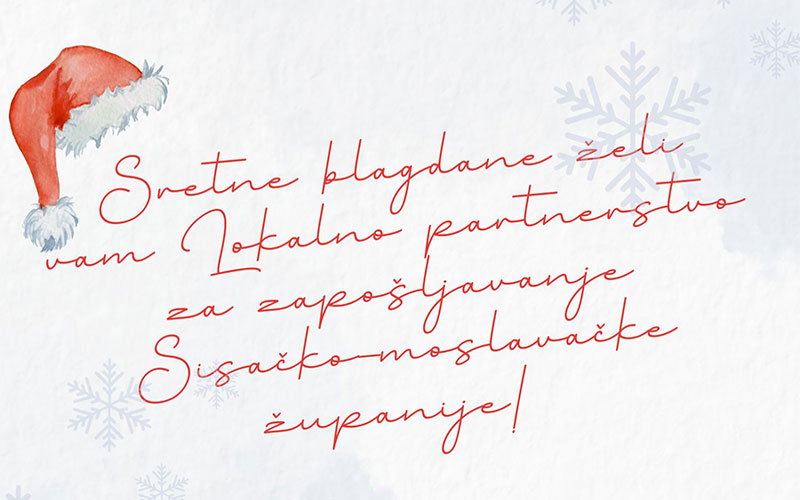 Sretne blagdane želi
vam Lokalno partnerstvo
za zapošljavanje
Sisačko-moslavačke
županije!